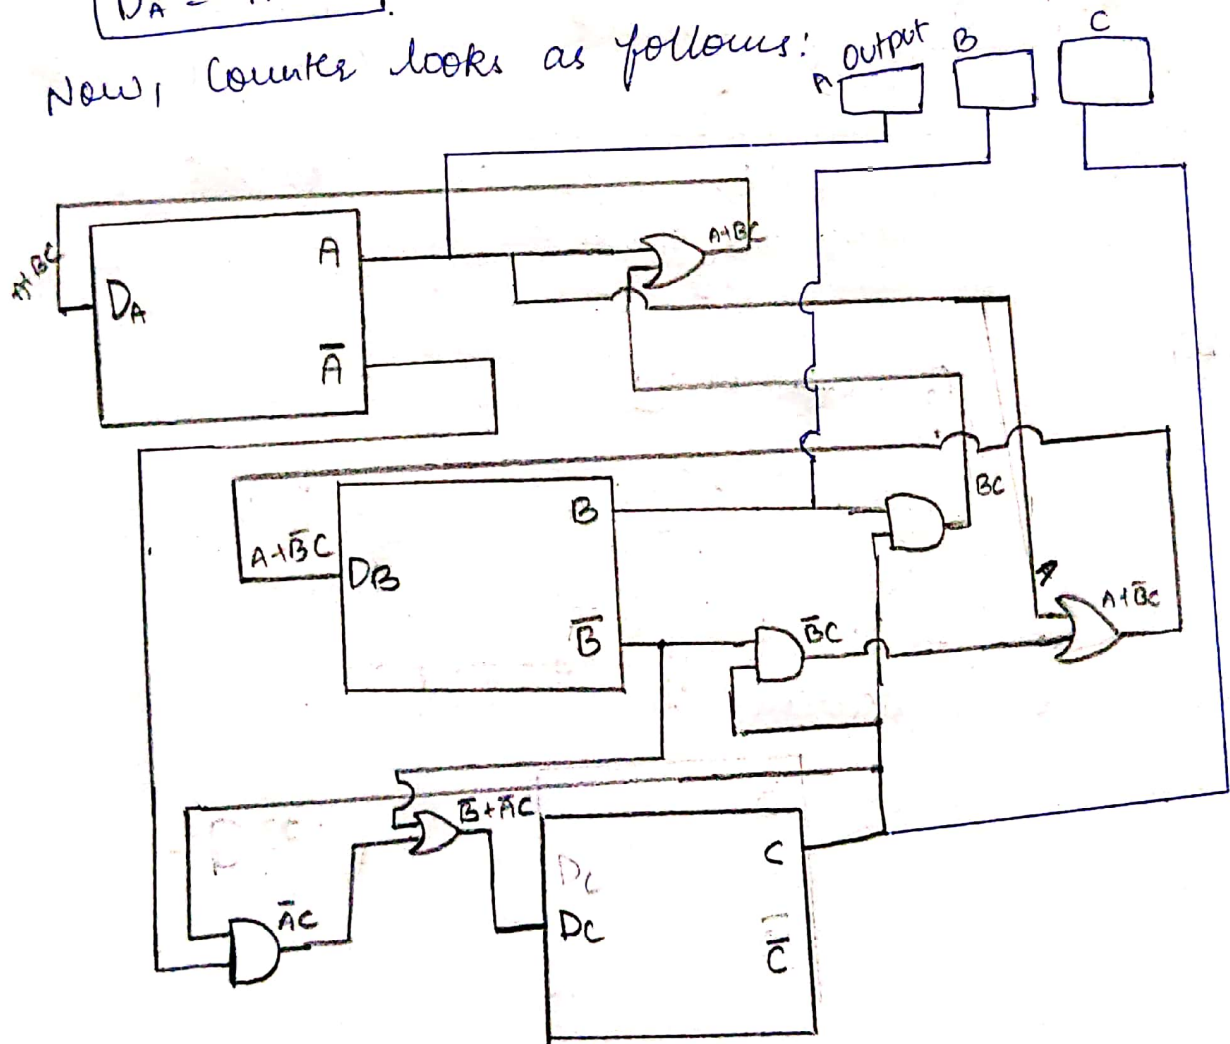 DA =
Now, Counter looks as follows:
A Output B C
A+BC
A+BC
DA
A
A̅
B
BC
A+B̅C
DB
B̅
B̅C
A
A+B̅C
B̅+A̅C
C
DC
DC
A̅C
C̅